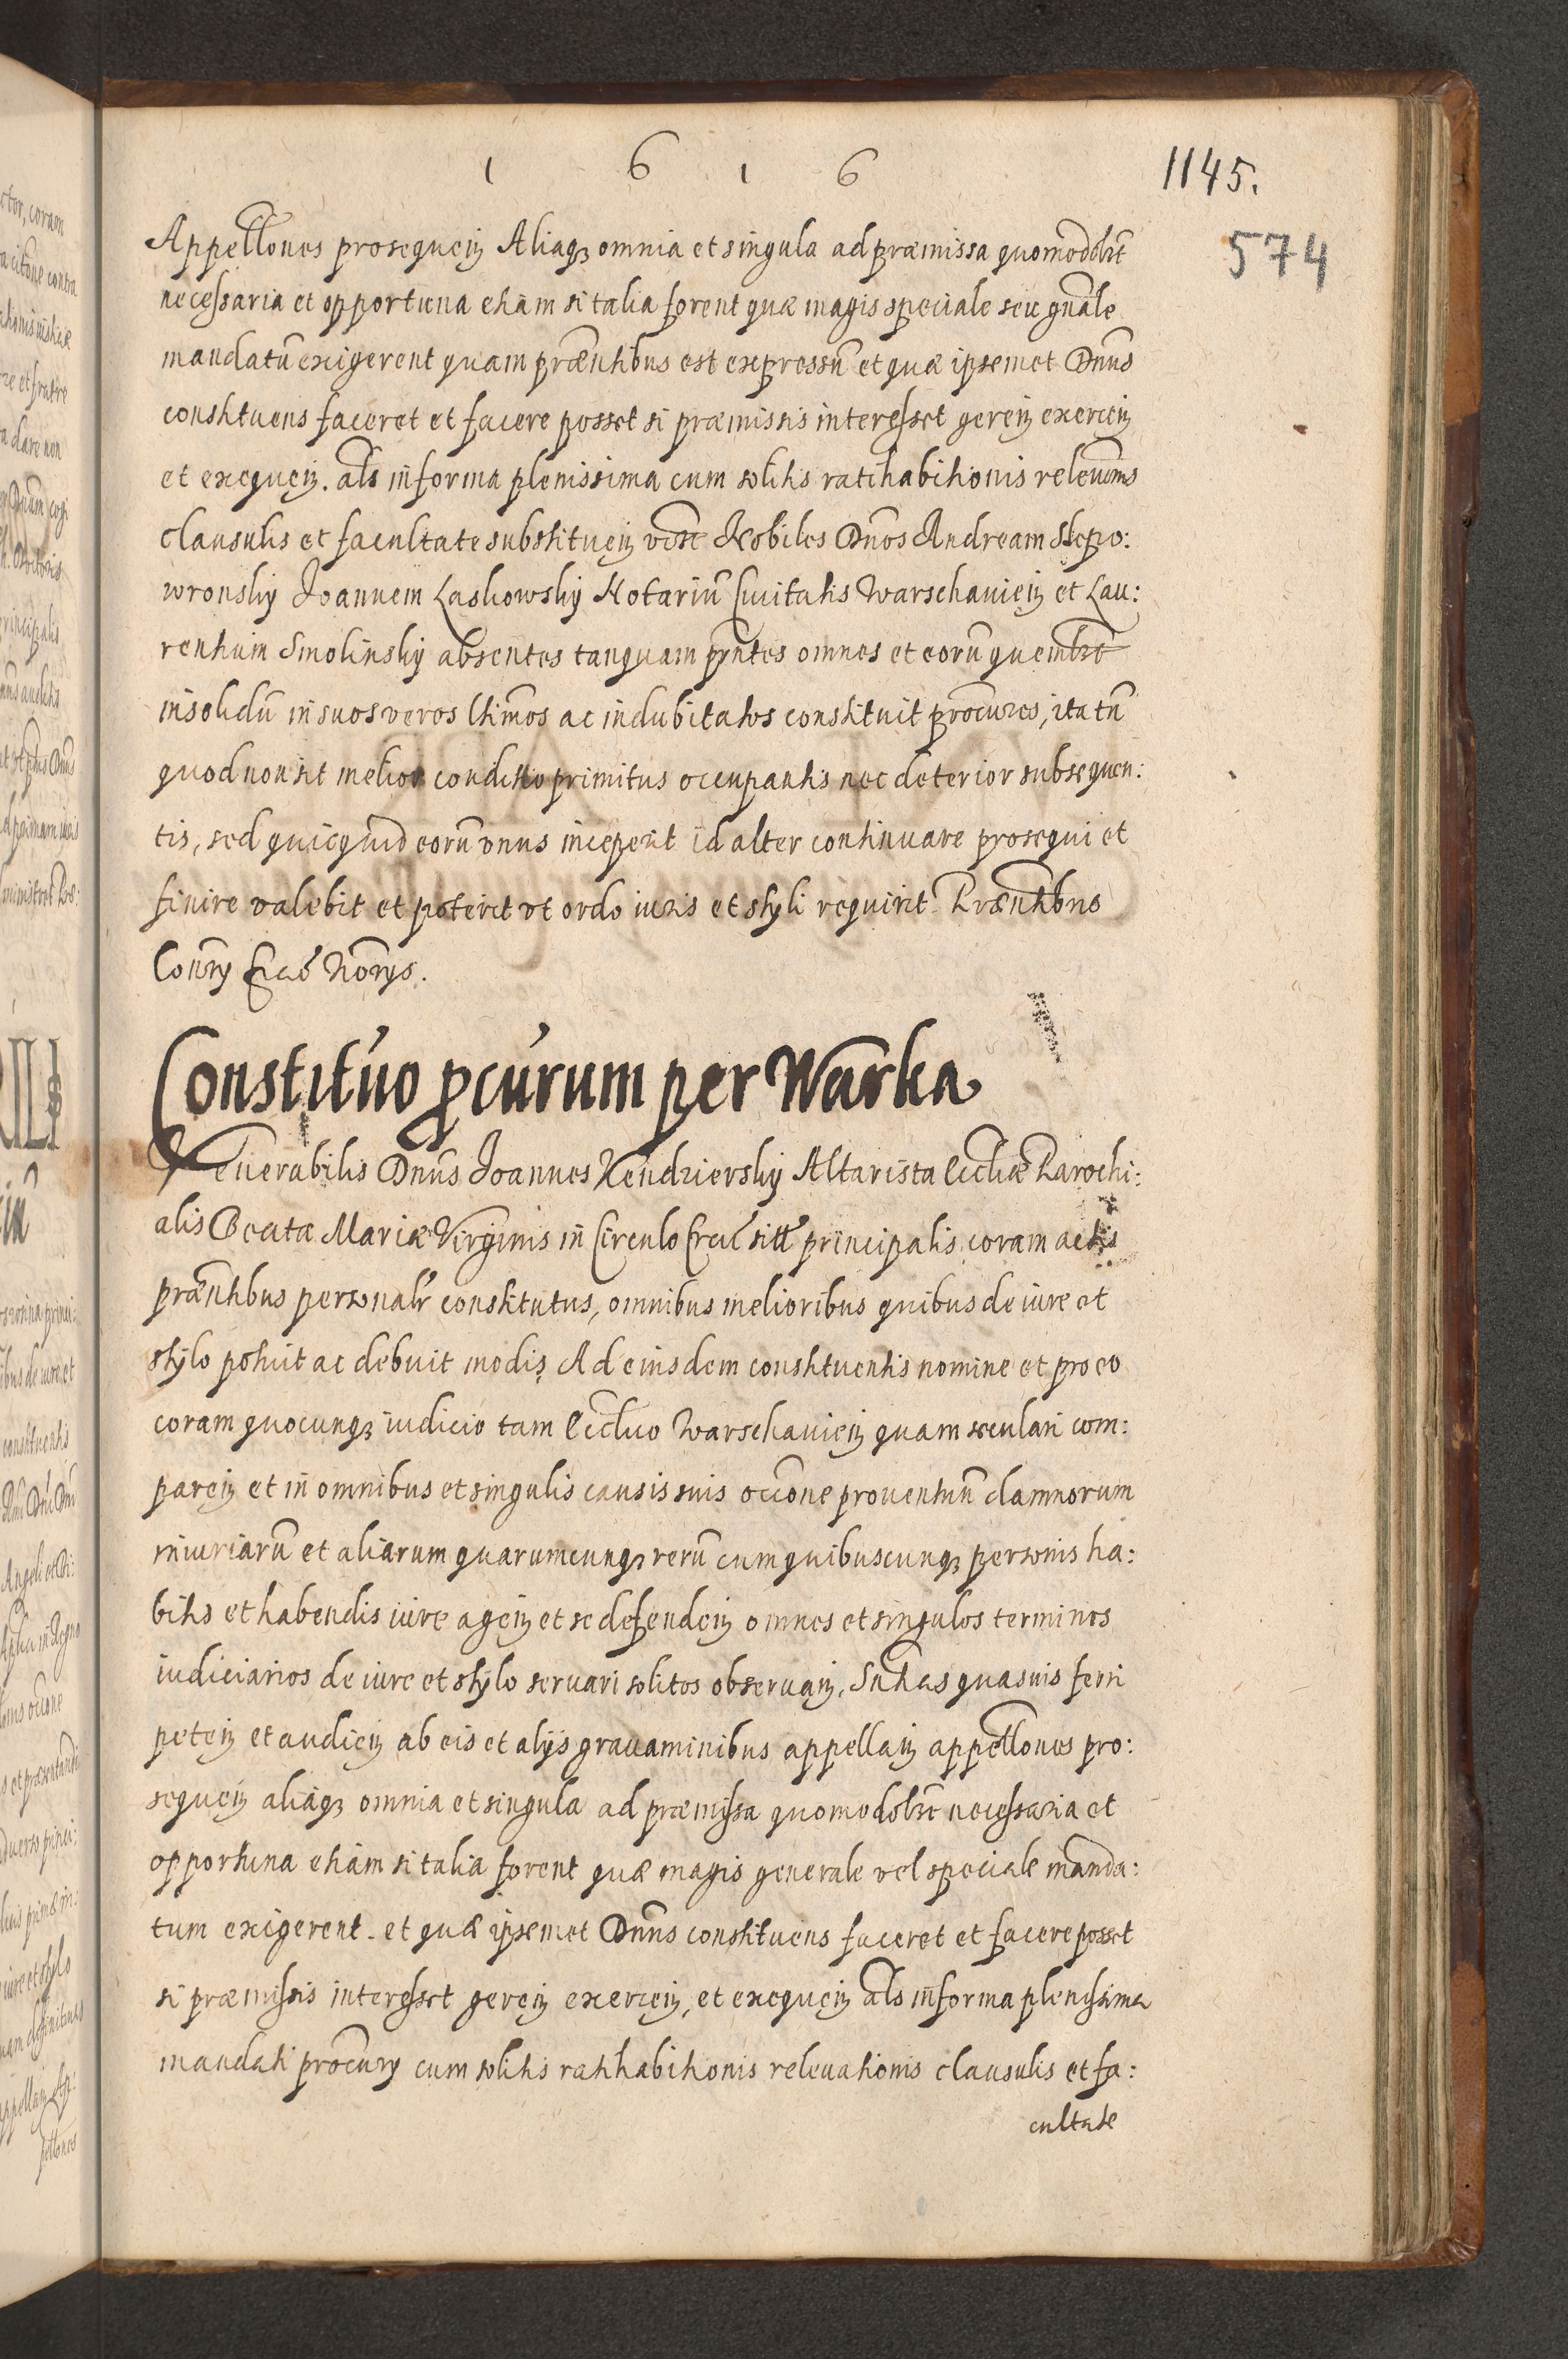 1 6 1 6
1145.
574
Appellones prosequeñ Aliaqȝ omnia et singula ad præmissa quomodolt
necessaria et opportuna etiam si talia forent quæ magis speciale seu gnale
mandatũ exigerent quam præntibus est expressũ et quæ ipsemet Dnus
constituens faceret et facere posset si præmissis interesset gereñ exerceñ
et exequeñ. als in forma plenissima cum solitis ratihabitionis releuonis
clausulis et facultate substitueñ vdlt Nobiles Dnos Andream Slepo:
wronsky Joannem Laskowsky Notariũ Ciuitatis Warschauieñ et Lau:
rentium Smolinsky absentes tanquam pñtes omnes et eorũ quemlt
insolidũ in suos veros ltimos ac indubitatos constituit procures, ita tñ
quod non sit melior conditio primitus occupantis nec deterior subsequen:
tis, sed quicquid eorũ vnus inceperit id alter continuare prosequi et
finire valebit et poterit vt ordo iuris et styli requirit Præntibus
Consry Crac Norys.
Constituo pcurum per Warka
Venerabilis Dnus Joannes Kendziersky Altarista Eccliæ Parochi:
alis Beatæ Mariæ Virginis in Circulo Crac sitæ principalis coram actis
præntibus personalr constitutus, omnibus melioribus quibus de iure et
stylo potuit ac debuit modis Ad eiusdem constituentis nomine et pro eo
coram quocunqȝ iudicio tam Ecclico Warschauieñ quam seculari com:
pareñ et in omnibus et singulis causis suis occone prouentuũ damnorum
iniuriarũ et aliarum quarumcunqȝ rerũ cum quibuscunqȝ personis ha:
bitis et habendis iure ageñ et se defendeñ omnes et singulos terminos
iudiciarios de iure et stylo seruari solitos obseruañ. Sntias quasuis ferri
peteñ et audieñ ab eis et alijs grauaminibus appellañ appellones pro:
sequeñ aliaqȝ omnia et singula ad præmissa quomodolt necessaria et
opportuna etiam si talia forent quæ magis generale vel speciale manda:
tum exigerent. et quæ ipsemet Dnus constituens faceret et facere posset
si præmissis interesset gereñ exerceñ, et exequeñ als in forma plenissima
mandati procury cum solitis ratihabitionis releuationis clausulis et fa:
cultate